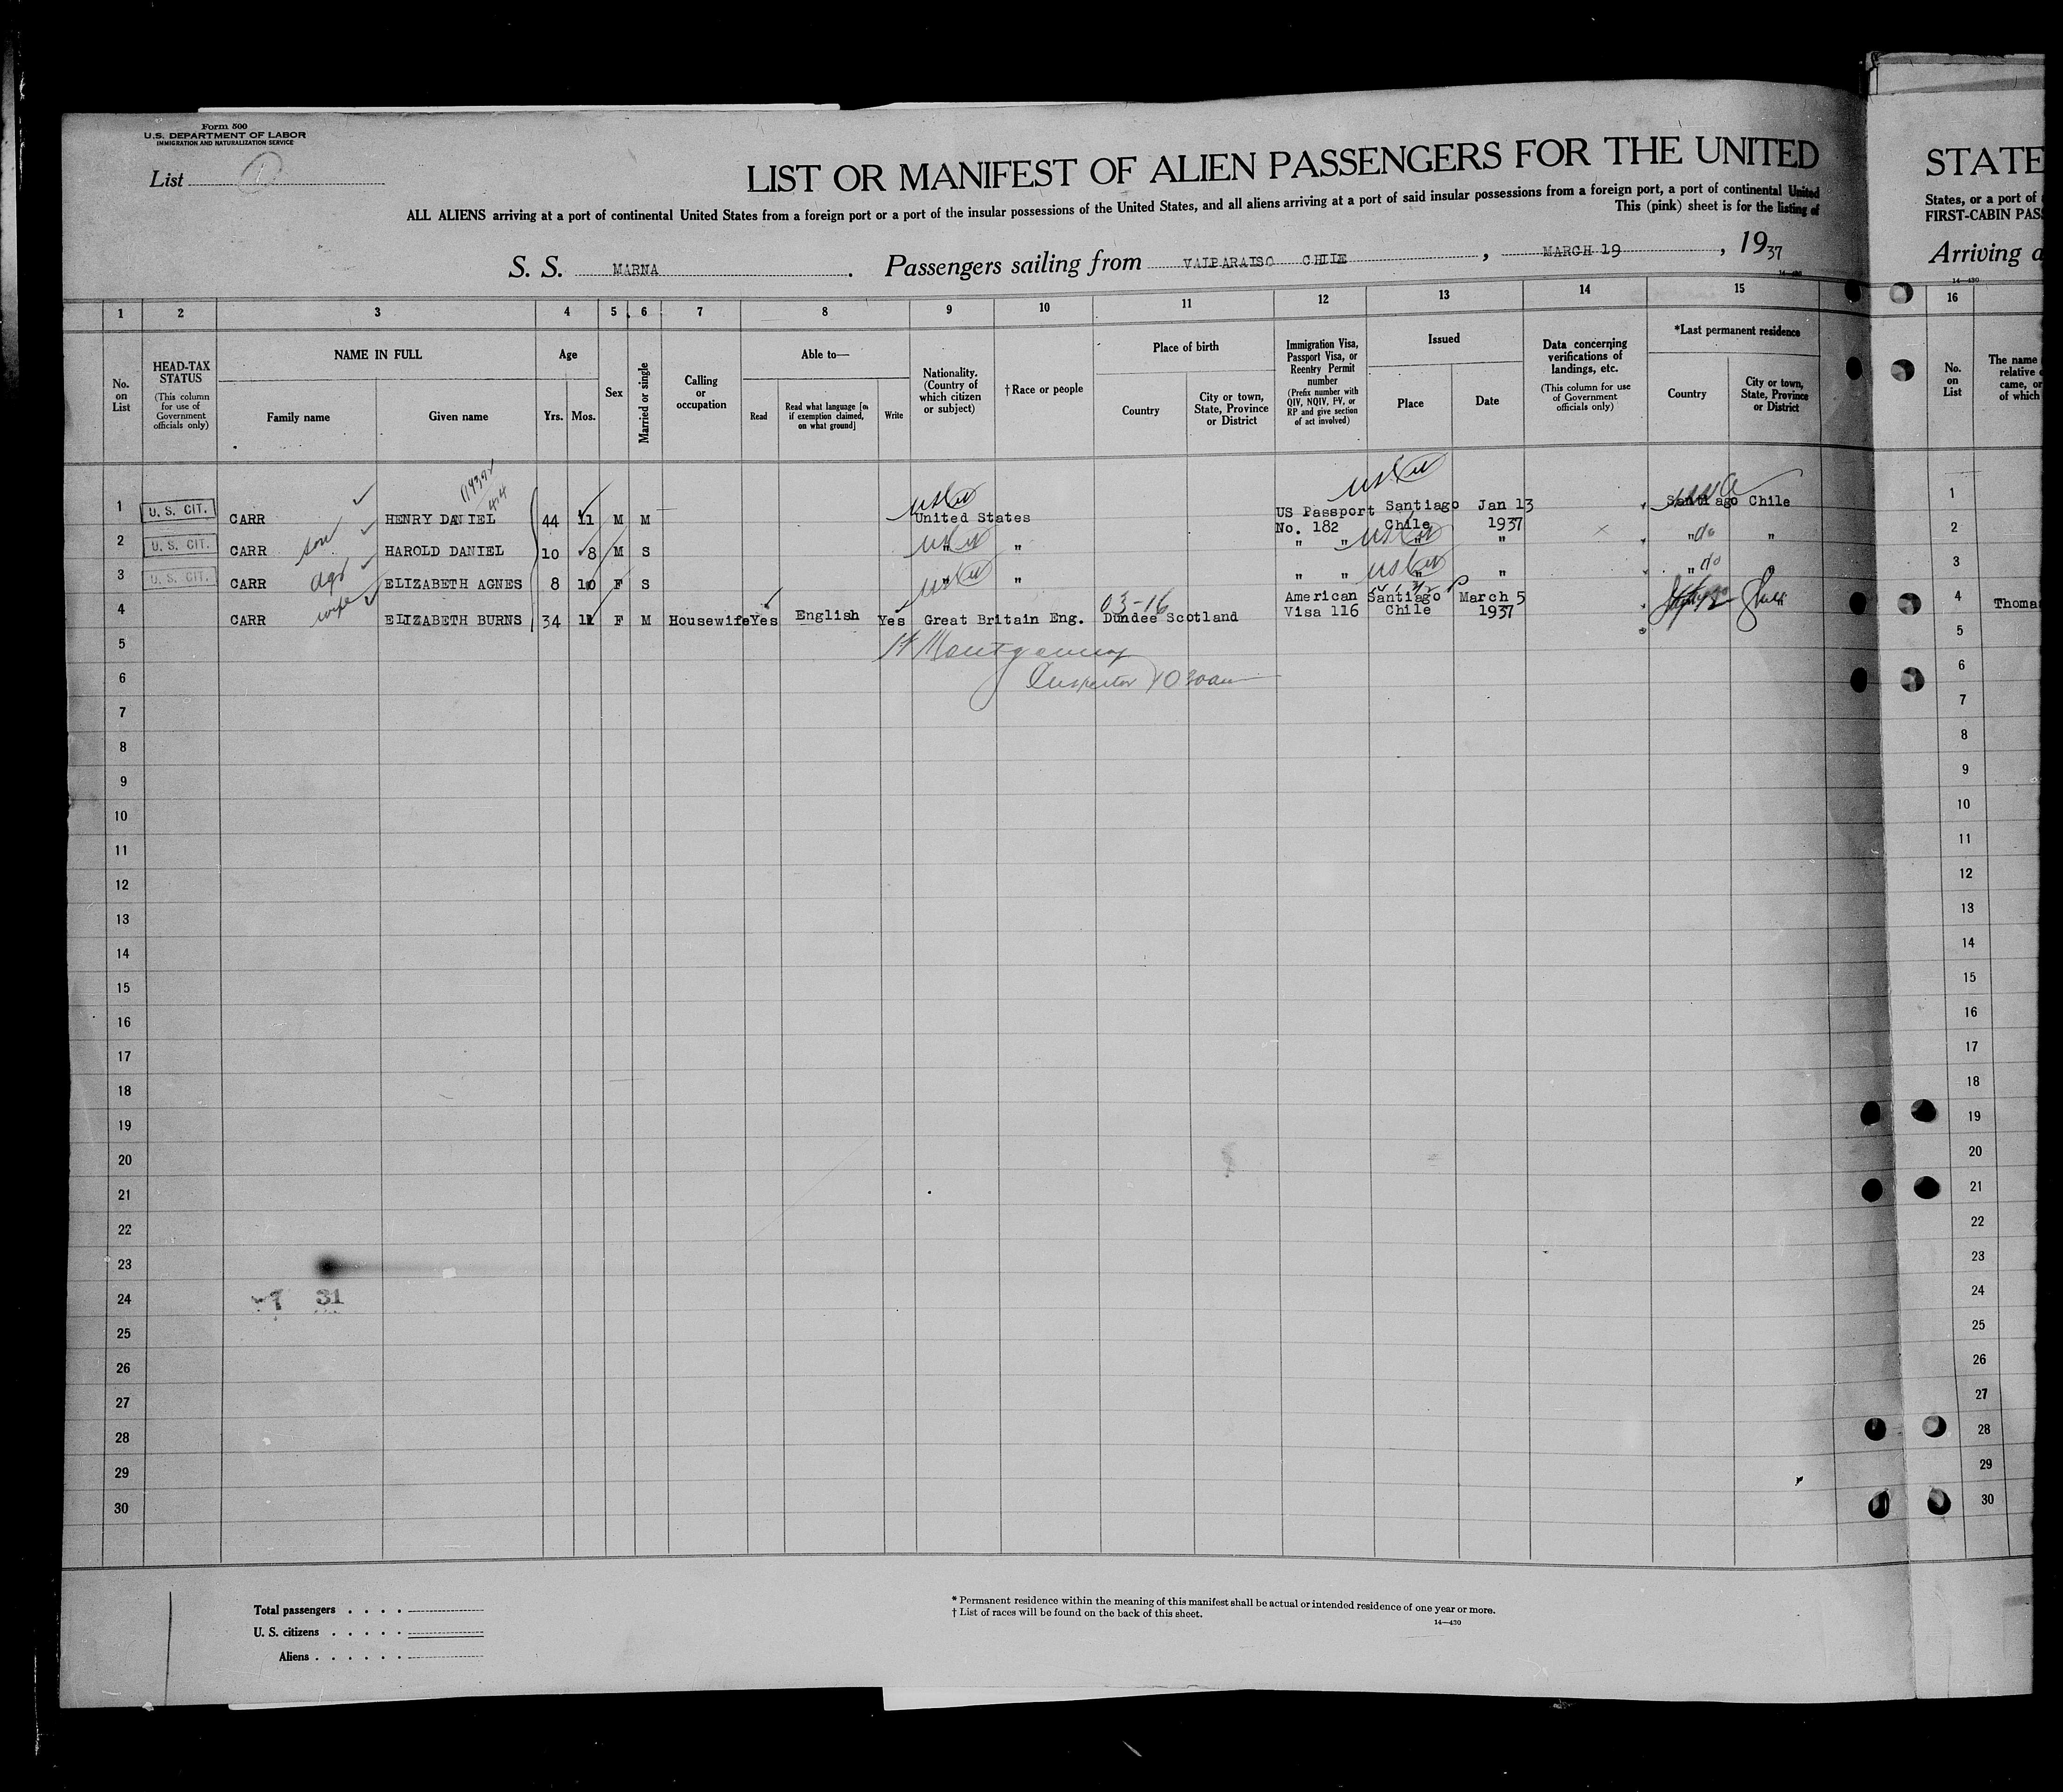 Form 500
U.S. DEPARTMENT OF LABOR
IMMIGRATION AND NATURALIZATION SERVICE
List 1
LIST OR MANIFEST OF ALIEN PASSENGERS FOR THE UNITED
STATE
ALL ALIENS arriving at a port of continental United States from a foreign port or a port of the insular possessions of the United States, and all aliens arriving at a port of said insular possessions from a foreign port, a port of continental United
States, or a port of
This (pink) sheet is for the listing of
FIRST-CABIN PAS
S. S. MARNA. Passengers sailing from VALPARAISO CHILE, MARCH 19, 1937
Arriving a
14—430
14—430
1 2 3 4 5 6 7 8 9 10 11 12 13 14 15 16
No. on List
HEAD-TAX STATUS (This column for use of Government officials only)
NAME IN FULL
Family name
Given name
Age
Yrs. Mos.
Sex
Married or single
Calling or occupation
Able to—
Read
Read what language [or if exemption claimed, on what ground]
Write
Nationality. (Country of which citizen or subject)
† Race or people
Place of birth
Country
City or town, State, Province or District
Immigration Visa, Passport Visa, or Reentry Permit number (Prefix number with QIV, NQIV, PV, or RP and give section of act involved)
Issued
Place
Date
Data concerning verifications of landings, etc. (This column for use of Government officials only)
*Last permanent residence
Country
City or town, State, Province or District
No. on List
The name
relative
came, or
of which
1 U. S. CIT. CARR HENRY DANIEL 44 11 M M United States US Passport No. 182 Santiago Chile Jan 13 1937 Santiago Chile 1
2 U. S. CIT. CARR son HAROLD DANIEL 10 8 M S " " " " " " " do " 2
3 U. S. CIT. CARR dgt ELIZABETH AGNES 8 10 F S " " " " " " " do " 3
4 CARR wife ELIZABETH BURNS 34 11 F M Housewife Yes English Yes Great Britain Eng. 03-16 Dundee Scotland American Visa 116 Santiago Chile March 5 1937 4 Thoma
5 H Montgomery 5
6 Inspector 10 30 am 6
7 7
8 8
9 9
10 10
11 11
12 12
13 13
14 14
15 15
16 16
17 17
18 18
19 19
20 20
21 21
22 22
23 23
24 31 24
25 25
26 26
27 27
28 28
29 29
30 30
Total passengers . . . .
U. S. citizens . . . . .
Aliens . . . . . .
* Permanent residence within the meaning of this manifest shall be actual or intended residence of one year or more.
† List of races will be found on the back of this sheet.
14—430